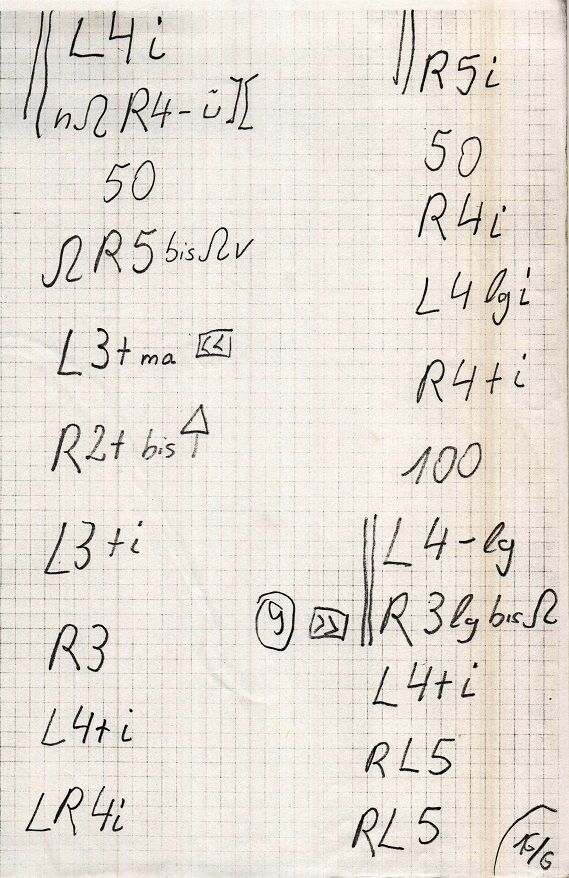 L4i
nΩ R4-ü][
50
ΩR5 bis Ωv
L3+ ma <<
R2+ bis
L3+i
R3
L4+i
LR4i
R5i
50
R4i
L4lgi
R4+i
100
L4-lg
9 >> R3lg bis Ω
L4+i
RL5
RL5